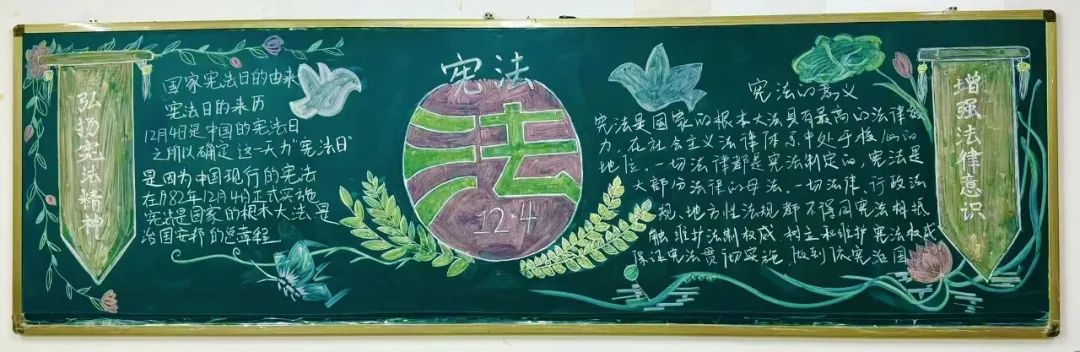 弘扬宪法精神
国家宪法日的由来
宪法日的来历
12月4日是中国的宪法日
之所以确定这一天为"宪法日"
是因为中国现行的宪法
在1982年12月4日正式实施
宪法是国家的根本大法是
治国安邦的总章程
宪法
法
12.4
宪法的意义
宪法是国家的根本大法具有最高的法律效
力,在社会主义法律体系中处于核心的
地位,一切法律都是宪法制定的,宪法是
大部份法律的母法,一切法律、行政法
规、地方性法规都不得同宪法相抵
触维护法制权威 树立和维护宪法权威
保证宪法贯彻实施,做到依宪治国
增强法律意识